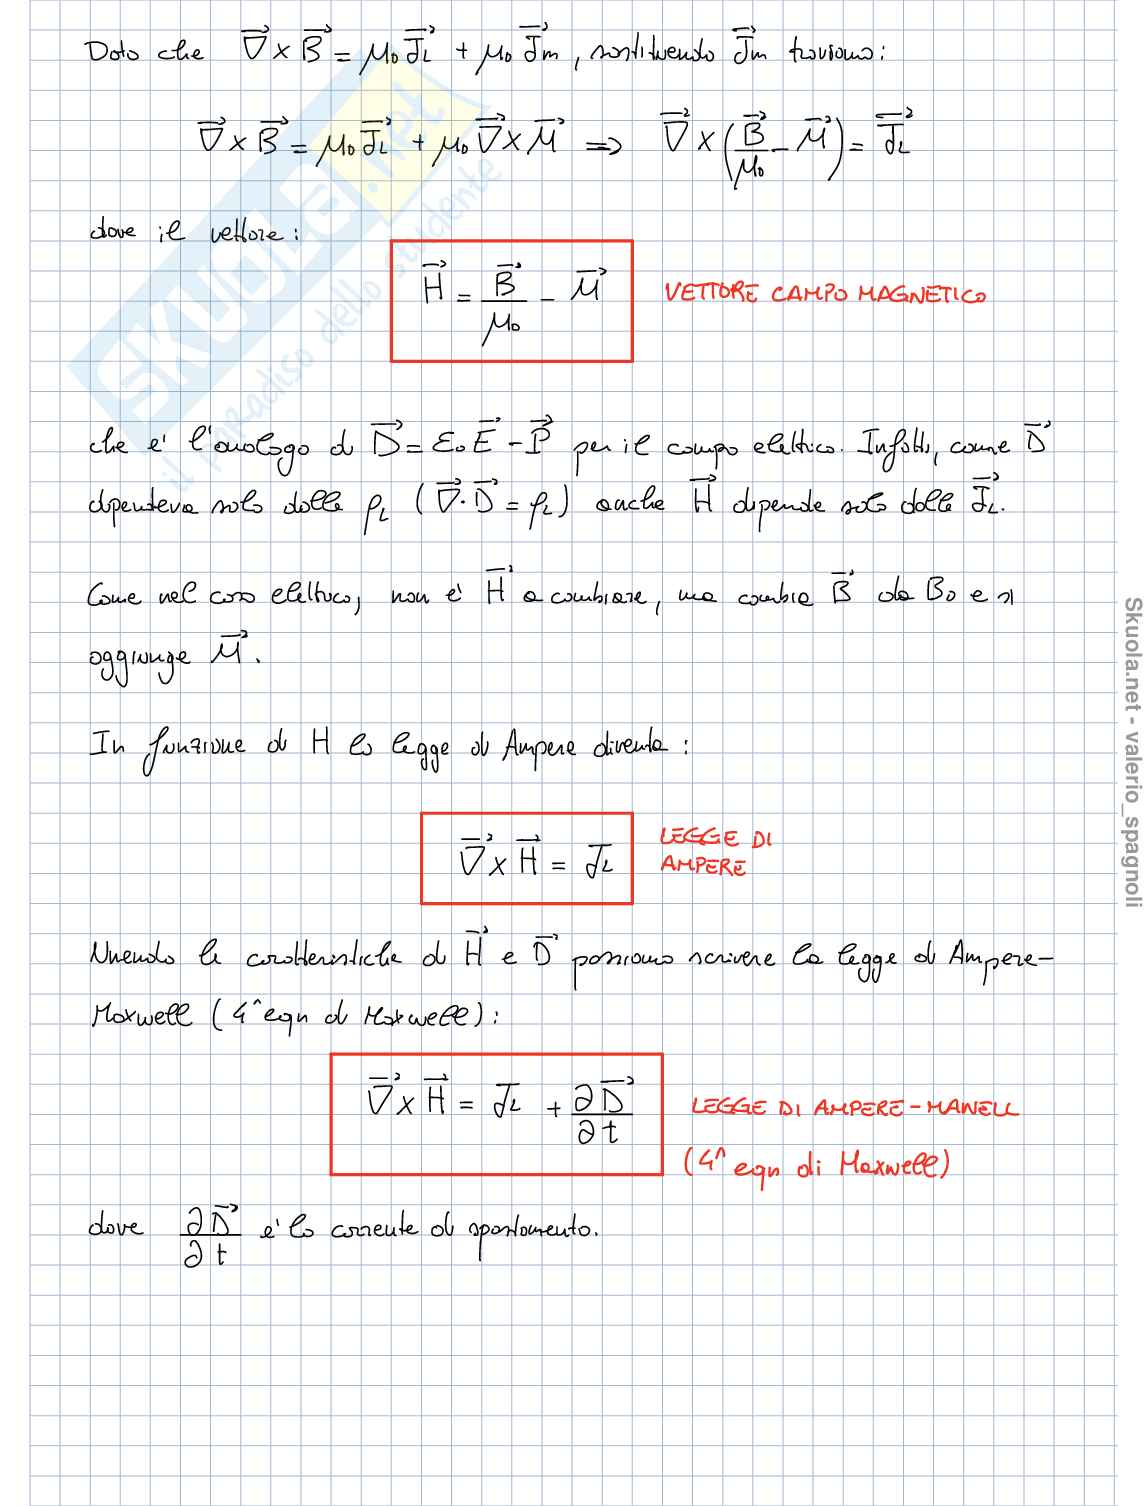 Dato che ∇⃗×B⃗ = μ₀J⃗L + μ₀J⃗m, sostituendo J⃗m troviamo:
∇⃗×B⃗ = μ₀J⃗L + μ₀∇⃗×M⃗ ⇒ ∇⃗×(B⃗/μ₀ − M⃗) = J⃗L
dove il vettore:
H⃗ = B⃗/μ₀ − M⃗ VETTORE CAMPO MAGNETICO
che e' l'analogo di D⃗ = ε₀E⃗ − P⃗ per il campo elettrico. Infatti, come D⃗
dipendeva solo dalle ρL (∇⃗·D⃗ = ρL) anche H⃗ dipende solo dalle J⃗L.
Come nel caso elettrico, non e' H⃗ a cambiare, ma cambia B⃗ da B₀ e si
aggiunge M⃗.
In funzione di H la legge di Ampere diventa:
∇⃗×H⃗ = JL LEGGE DI
AMPERE
Unendo le caratteristiche di H⃗ e D⃗ possiamo scrivere la legge di Ampere-
Maxwell (4^ eqn di Maxwell):
∇⃗×H⃗ = JL + ∂D⃗/∂t LEGGE DI AMPERE-MAWELL
(4^ eqn di Maxwell)
dove ∂D⃗/∂t e' la corrente di spostamento.
SKUOLA.net
il paradiso dello studente
Skuola.net - valerio_spagnoli